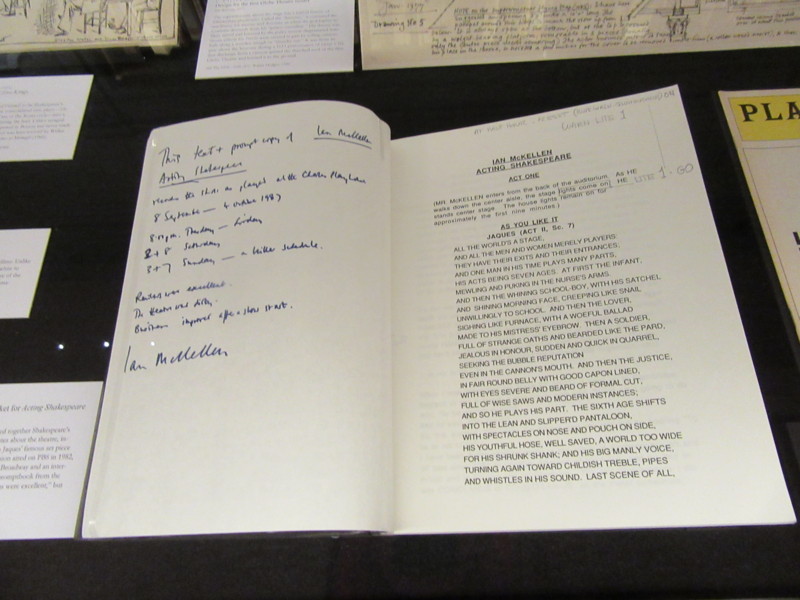 This text + prompt copy of Ian McKellen
Acting Shakespeare
records the show as played at the Charles Playhouse
8 September — 4 October 1987
8.0 p.m. Tuesday — Friday
2 + 8 Saturday
3 + 7 Sunday — a killer schedule.
Reviews were excellent.
The theatre was dirty.
Business improved after a slow start.
Ian McKellen
WARN LITE 1
IAN McKELLEN
ACTING SHAKESPEARE
ACT ONE
(MR. McKELLEN enters from the back of the auditorium. As HE
walks down the center aisle, the stage lights come on. HE LITE 1 · GO
stands center stage. The house lights remain on for
approximately the first nine minutes.)
AS YOU LIKE IT
JAQUES (ACT II, Sc. 7)
ALL THE WORLD'S A STAGE,
AND ALL THE MEN AND WOMEN MERELY PLAYERS:
THEY HAVE THEIR EXITS AND THEIR ENTRANCES;
AND ONE MAN IN HIS TIME PLAYS MANY PARTS,
HIS ACTS BEING SEVEN AGES. AT FIRST THE INFANT,
MEWLING AND PUKING IN THE NURSE'S ARMS.
AND THEN THE WHINING SCHOOL-BOY, WITH HIS SATCHEL
AND SHINING MORNING FACE, CREEPING LIKE SNAIL
UNWILLINGLY TO SCHOOL. AND THEN THE LOVER,
SIGHING LIKE FURNACE, WITH A WOEFUL BALLAD
MADE TO HIS MISTRESS' EYEBROW. THEN A SOLDIER,
FULL OF STRANGE OATHS AND BEARDED LIKE THE PARD,
JEALOUS IN HONOUR, SUDDEN AND QUICK IN QUARREL,
SEEKING THE BUBBLE REPUTATION
EVEN IN THE CANNON'S MOUTH. AND THEN THE JUSTICE,
IN FAIR ROUND BELLY WITH GOOD CAPON LINED,
WITH EYES SEVERE AND BEARD OF FORMAL CUT,
FULL OF WISE SAWS AND MODERN INSTANCES;
AND SO HE PLAYS HIS PART. THE SIXTH AGE SHIFTS
INTO THE LEAN AND SLIPPER'D PANTALOON,
WITH SPECTACLES ON NOSE AND POUCH ON SIDE,
HIS YOUTHFUL HOSE, WELL SAVED, A WORLD TOO WIDE
FOR HIS SHRUNK SHANK; AND HIS BIG MANLY VOICE,
TURNING AGAIN TOWARD CHILDISH TREBLE, PIPES
AND WHISTLES IN HIS SOUND. LAST SCENE OF ALL,
ket for Acting Shakespeare
together Shakespeare's
about the theatre, to
Jaques' famous set piece
aired on PBS in 1982,
Broadway and an
promptbook from the
were excellent," but
PLA